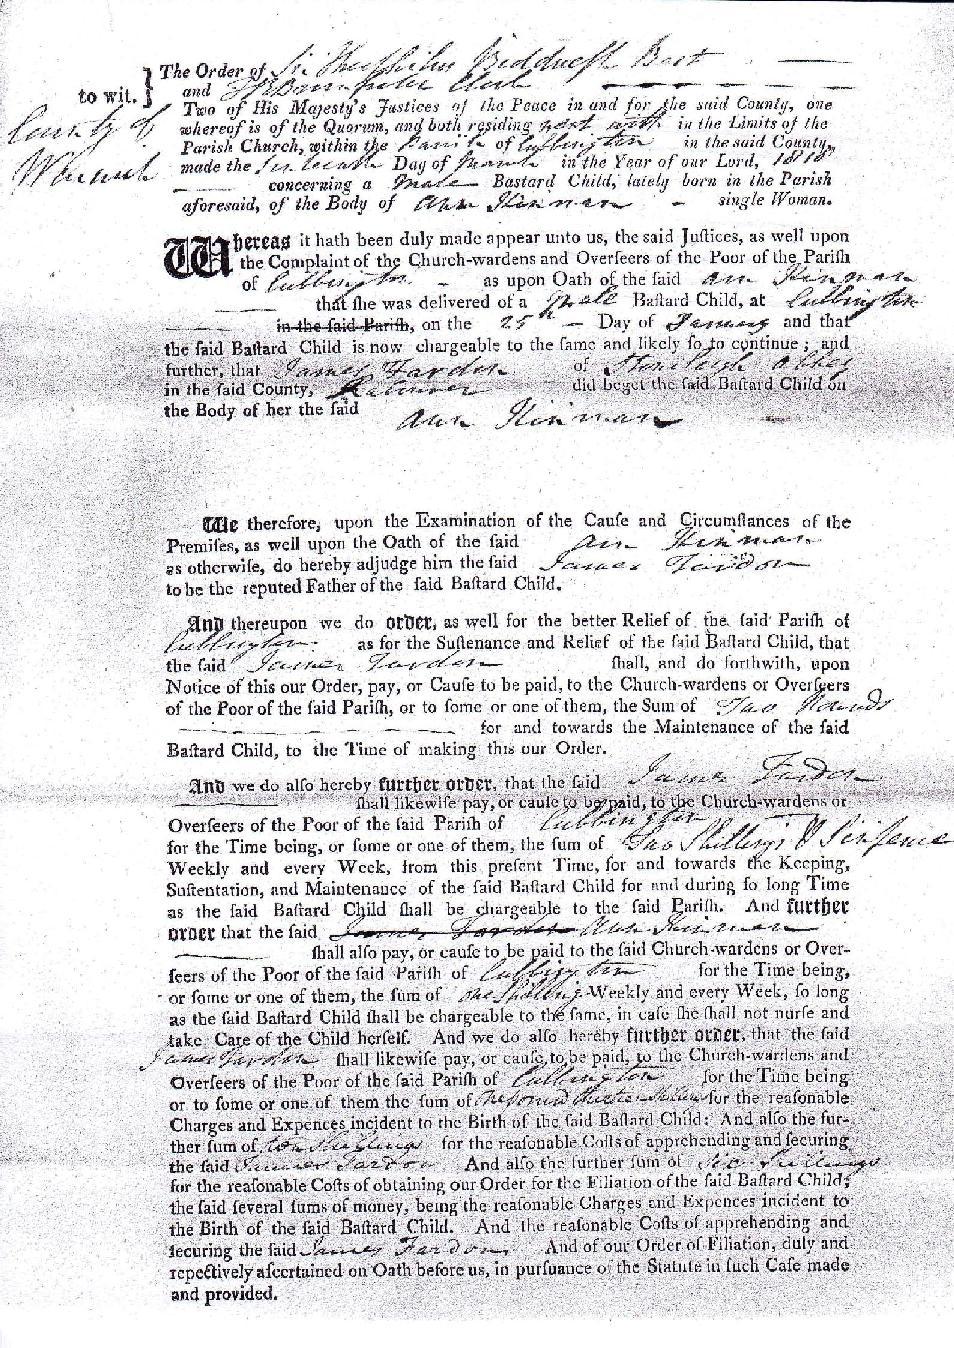 The Order of Sir Theophilus Biddulph Bart
to wit. } and Clerk
County of
Warwick
Two of His Majesty's Justices of the Peace in and for the said County, one
whereof is of the Quorum, and both residing next unto in the Limits of the
Parish Church, within the Parish of Cubbington in the said County,
made the Day of March in the Year of our Lord, 1818
concerning a Male Bastard Child, lately born in the Parish
aforesaid, of the Body of Ann Hinman - single Woman.
Whereas it hath been duly made appear unto us, the said Juſtices, as well upon
the Complaint of the Church-wardens and Overſeers of the Poor of the Pariſh
of Cubbington - as upon Oath of the ſaid Ann Hinman
that ſhe was delivered of a Male Baſtard Child, at Cubbington
in the ſaid Pariſh, on the 25th - Day of January and that
the ſaid Baſtard Child is now chargeable to the ſame and likely ſo to continue; and
further, that James Fardon of Stoneleigh Abbey
in the ſaid County, Labourer did beget the ſaid Baſtard Child on
the Body of her the ſaid
Ann Hinman
We therefore, upon the Examination of the Cauſe and Circumſtances of the
Premiſes, as well upon the Oath of the ſaid Ann Hinman
as otherwiſe, do hereby adjudge him the ſaid James Fardon
to be the reputed Father of the ſaid Baſtard Child.
And thereupon we do order, as well for the better Relief of the ſaid Pariſh of
Cubbington as for the Suſtenance and Relief of the ſaid Baſtard Child, that
the ſaid James Fardon ſhall, and do forthwith, upon
Notice of this our Order, pay, or Cauſe to be paid, to the Church-wardens or Overſeers
of the Poor of the ſaid Pariſh, or to ſome or one of them, the Sum of Two Pounds
for and towards the Maintenance of the ſaid
Baſtard Child, to the Time of making this our Order.
And we do alſo hereby further order, that the ſaid James Fardon
ſhall likewiſe pay, or cauſe to be paid, to the Church-wardens or
Overſeers of the Poor of the ſaid Pariſh of Cubbington
for the Time being, or ſome or one of them, the ſum of Two Shillings & Sixpence
Weekly and every Week, from this preſent Time, for and towards the Keeping,
Suſtentation, and Maintenance of the ſaid Baſtard Child for and during ſo long Time
as the ſaid Baſtard Child ſhall be chargeable to the ſaid Pariſh. And further
order that the ſaid James Fardon Ann Hinman
ſhall alſo pay, or cauſe to be paid to the ſaid Church-wardens or Over-
ſeers of the Poor of the ſaid Pariſh of Cubbington for the Time being,
or ſome or one of them, the ſum of one Shilling Weekly and every Week, ſo long
as the ſaid Baſtard Child ſhall be chargeable to the ſame, in caſe ſhe ſhall not nurſe and
take Care of the Child herſelf. And we do alſo hereby further order, that the ſaid
James Fardon ſhall likewiſe pay, or cauſe to be paid, to the Church-wardens and
Overſeers of the Poor of the ſaid Pariſh of Cubbington for the Time being
or to ſome or one of them the ſum of for the reaſonable
Charges and Expences incident to the Birth of the ſaid Baſtard Child: And alſo the fur-
ther ſum of ten Shillings for the reaſonable Coſts of apprehending and ſecuring
the ſaid James Fardon And alſo the further ſum of Six Shillings
for the reaſonable Coſts of obtaining our Order for the Filiation of the ſaid Baſtard Child;
the ſaid ſeveral ſums of money, being the reaſonable Charges and Expences incident to
the Birth of the ſaid Baſtard Child. And the reaſonable Coſts of apprehending and
ſecuring the ſaid James Fardon, And of our Order of Filiation, duly and
repectively aſcertained on Oath before us, in purſuance of the Statute in ſuch Caſe made
and provided.